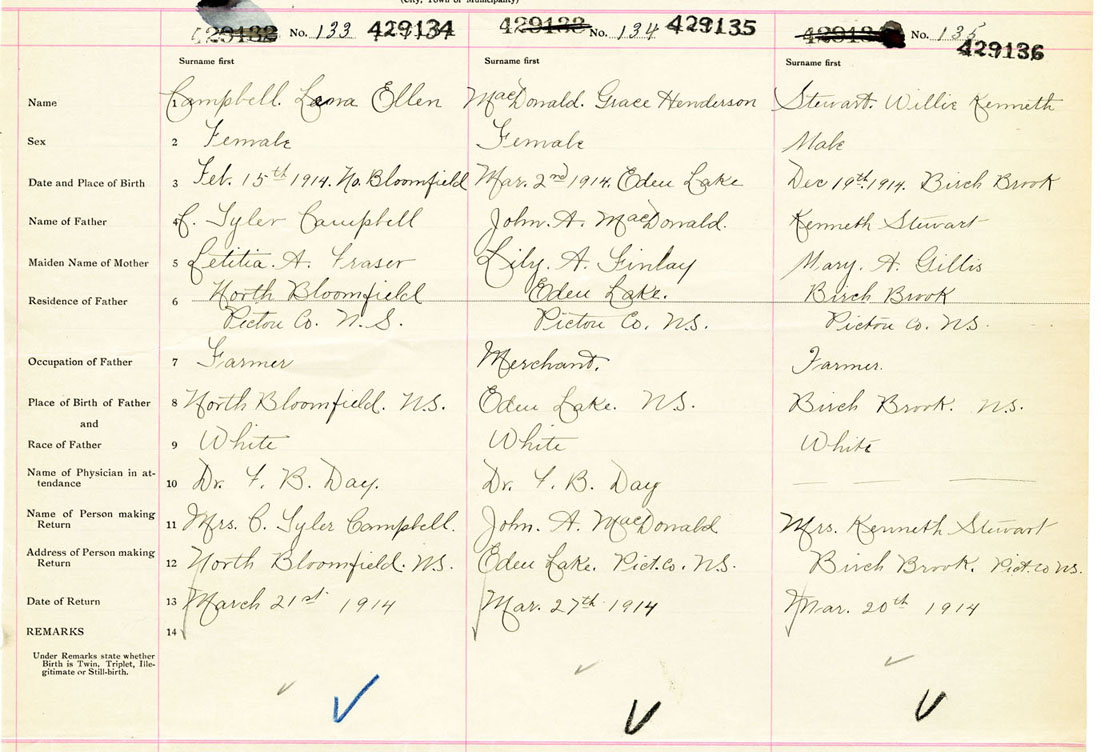 (City, Town or Municipality)
429133 No. 133 429134
429133 No. 134 429135
No. 135 429136
Surname first Surname first Surname first
Name 1 Campbell. Lena Ellen MacDonald. Grace Henderson Stewart. Willie Kenneth
Sex 2 Female Female Male
Date and Place of Birth 3 Feb. 15th 1914. No. Bloomfield Mar. 2nd 1914. Eden Lake Dec 19th. 1914. Birch Brook
Name of Father 4 C. Tyler Campbell John. A. MacDonald. Kenneth Stewart
Maiden Name of Mother 5 Letitia. A. Fraser Lily. A. Finlay Mary. A. Gillis
Residence of Father 6 North Bloomfield Eden Lake. Birch Brook
Pictou Co. N.S. Pictou Co. N.S. Pictou Co. N.S.
Occupation of Father 7 Farmer Merchant. Farmer.
Place of Birth of Father 8 North Bloomfield. N.S. Eden Lake. N.S. Birch Brook. N.S.
and
Race of Father 9 White White White
Name of Physician in at-
tendance 10 Dr. F. B. Day. Dr. F. B. Day
Name of Person making
Return 11 Mrs. C. Tyler Campbell. John. A. MacDonald Mrs. Kenneth Stewart
Address of Person making
Return 12 North Bloomfield. N.S. Eden Lake. Pict. Co. N.S. Birch Brook. Pict. Co N.S.
Date of Return 13 March 21st 1914 Mar. 27th 1914 Mar. 20th 1914
REMARKS 14
Under Remarks state whether
Birth is Twin, Triplet, Ille-
gitimate or Still-birth.